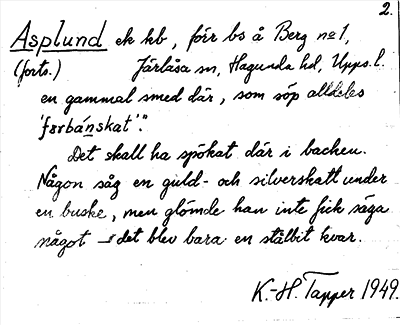 2.
Asplund ek kb, förr bs å Berg no 1,
(forts.) Järlåsa sn, Hagunda hd, Upps. l.
en gammal smed där, som söp alldeles
'forbánskat'."
Det skall ha spökat där i backen.
Någon såg en guld- och silverskatt under
en buske, men glömde han inte fick säga
något – det blev bara en stålbit kvar.
K.-H. Tapper 1949.